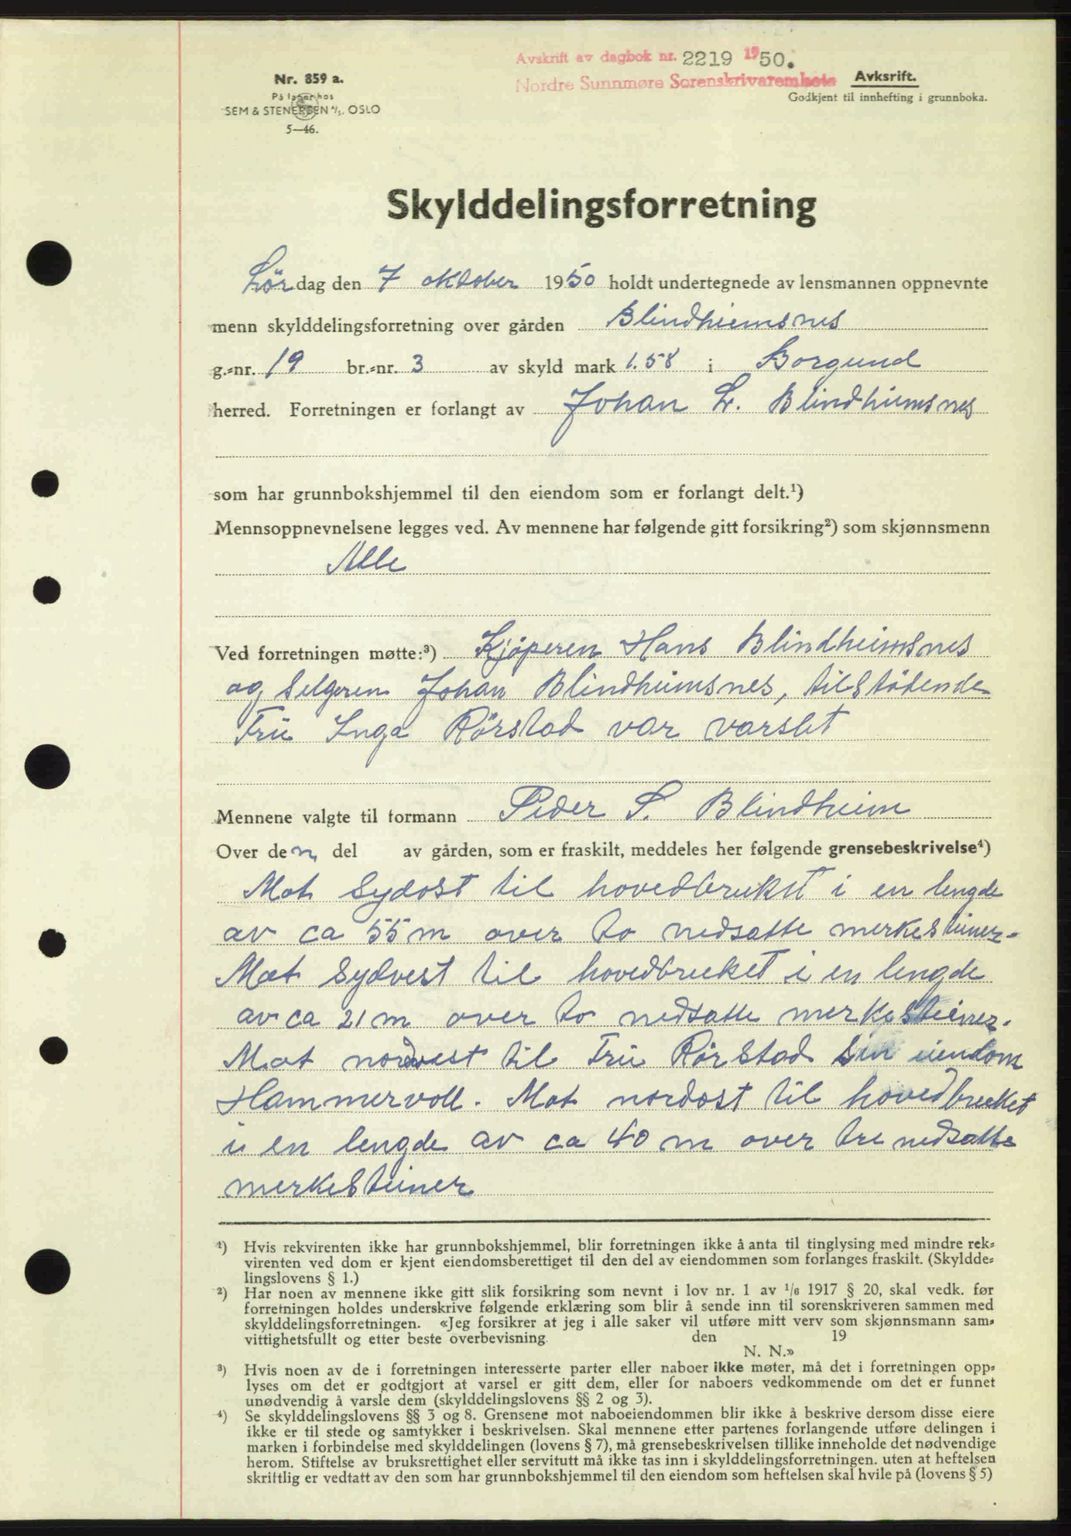 Avskrift av dagbok nr. 2219 1950.
Nordre Sunnmøre Sorenskrivarembete
Avksrift.
Godkjent til innhefting i grunnboka.
Nr. 859 a.
På lager hos
SEM & STENERSEN A/S. OSLO
5—46.
Skylddelingsforretning
Lördag den 7 oktober 1950 holdt undertegnede av lensmannen oppnevnte
menn skylddelingsforretning over gården Blindheimsnes
g.-nr. 19 br.-nr. 3 av skyld mark 1.58 i Borgund
herred. Forretningen er forlangt av Johan L. Blindheimsnes
som har grunnbokshjemmel til den eiendom som er forlangt delt.¹)
Mennsoppnevnelsene legges ved. Av mennene har følgende gitt forsikring²) som skjønnsmenn
Alle
Ved forretningen møtte:³) Kjöperen Hans Blindheimsnes
og Selgeren Johan Blindheimsnes, tilstödende
Fru Inga Rörstad var varslet
Mennene valgte til formann Peder S. Blindheim
Over den del av gården, som er fraskilt, meddeles her følgende grensebeskrivelse⁴)
Mot Sydost til hovedbruket i en lengde
av ca 55 m over to nedsatte merkesteiner.
Mot Sydvest til hovedbruket i en lengde
av ca 21 m over to nedsatte merkesteiner.
Mot nordvest til Fru Rörstad sin eiendom
Hammervoll. Mot nordost til hovedbruket
i en lengde av ca 40 m over tre nedsatte
merkesteiner
¹) Hvis rekvirenten ikke har grunnbokshjemmel, blir forretningen ikke å anta til tinglysing med mindre rek-
virenten ved dom er kjent eiendomsberettiget til den del av eiendommen som forlanges fraskilt. (Skyldde-
lingslovens § 1.)
²) Har noen av mennene ikke gitt slik forsikring som nevnt i lov nr. 1 av 1/6 1917 § 20, skal vedk. før
forretningen holdes underskrive følgende erklæring som blir å sende inn til sorenskriveren sammen med
skylddelingsforretningen. «Jeg forsikrer at jeg i alle saker vil utføre mitt verv som skjønnsmann sam-
vittighetsfullt og etter beste overbevisning den 19
N. N.»
³) Hvis noen av de i forretningen interesserte parter eller naboer ikke møter, må det i forretningen opp-
lyses om det er godtgjort at varsel er gitt dem, eller for naboers vedkommende om det er funnet
unødvendig å varsle dem (skylddelingslovens §§ 2 og 3).
⁴) Se skylddelingslovens §§ 3 og 8. Grensene mot naboeiendommen blir ikke å beskrive dersom disse eiere
ikke er til stede og samtykker i beskrivelsen. Skal mennene etter partenes forlangende utføre delingen i
marken i forbindelse med skylddelingen (lovens § 7), må grensebeskrivelsen tillike inneholde det nødvendige
herom. Stiftelse av bruksrettighet eller servitutt må ikke tas inn i skylddelingsforretningen. uten at heftelsen
skriftlig er vedtatt av den som har grunnbokshjemmel til den eiendom som heftelsen skal hvile på (lovens § 5)